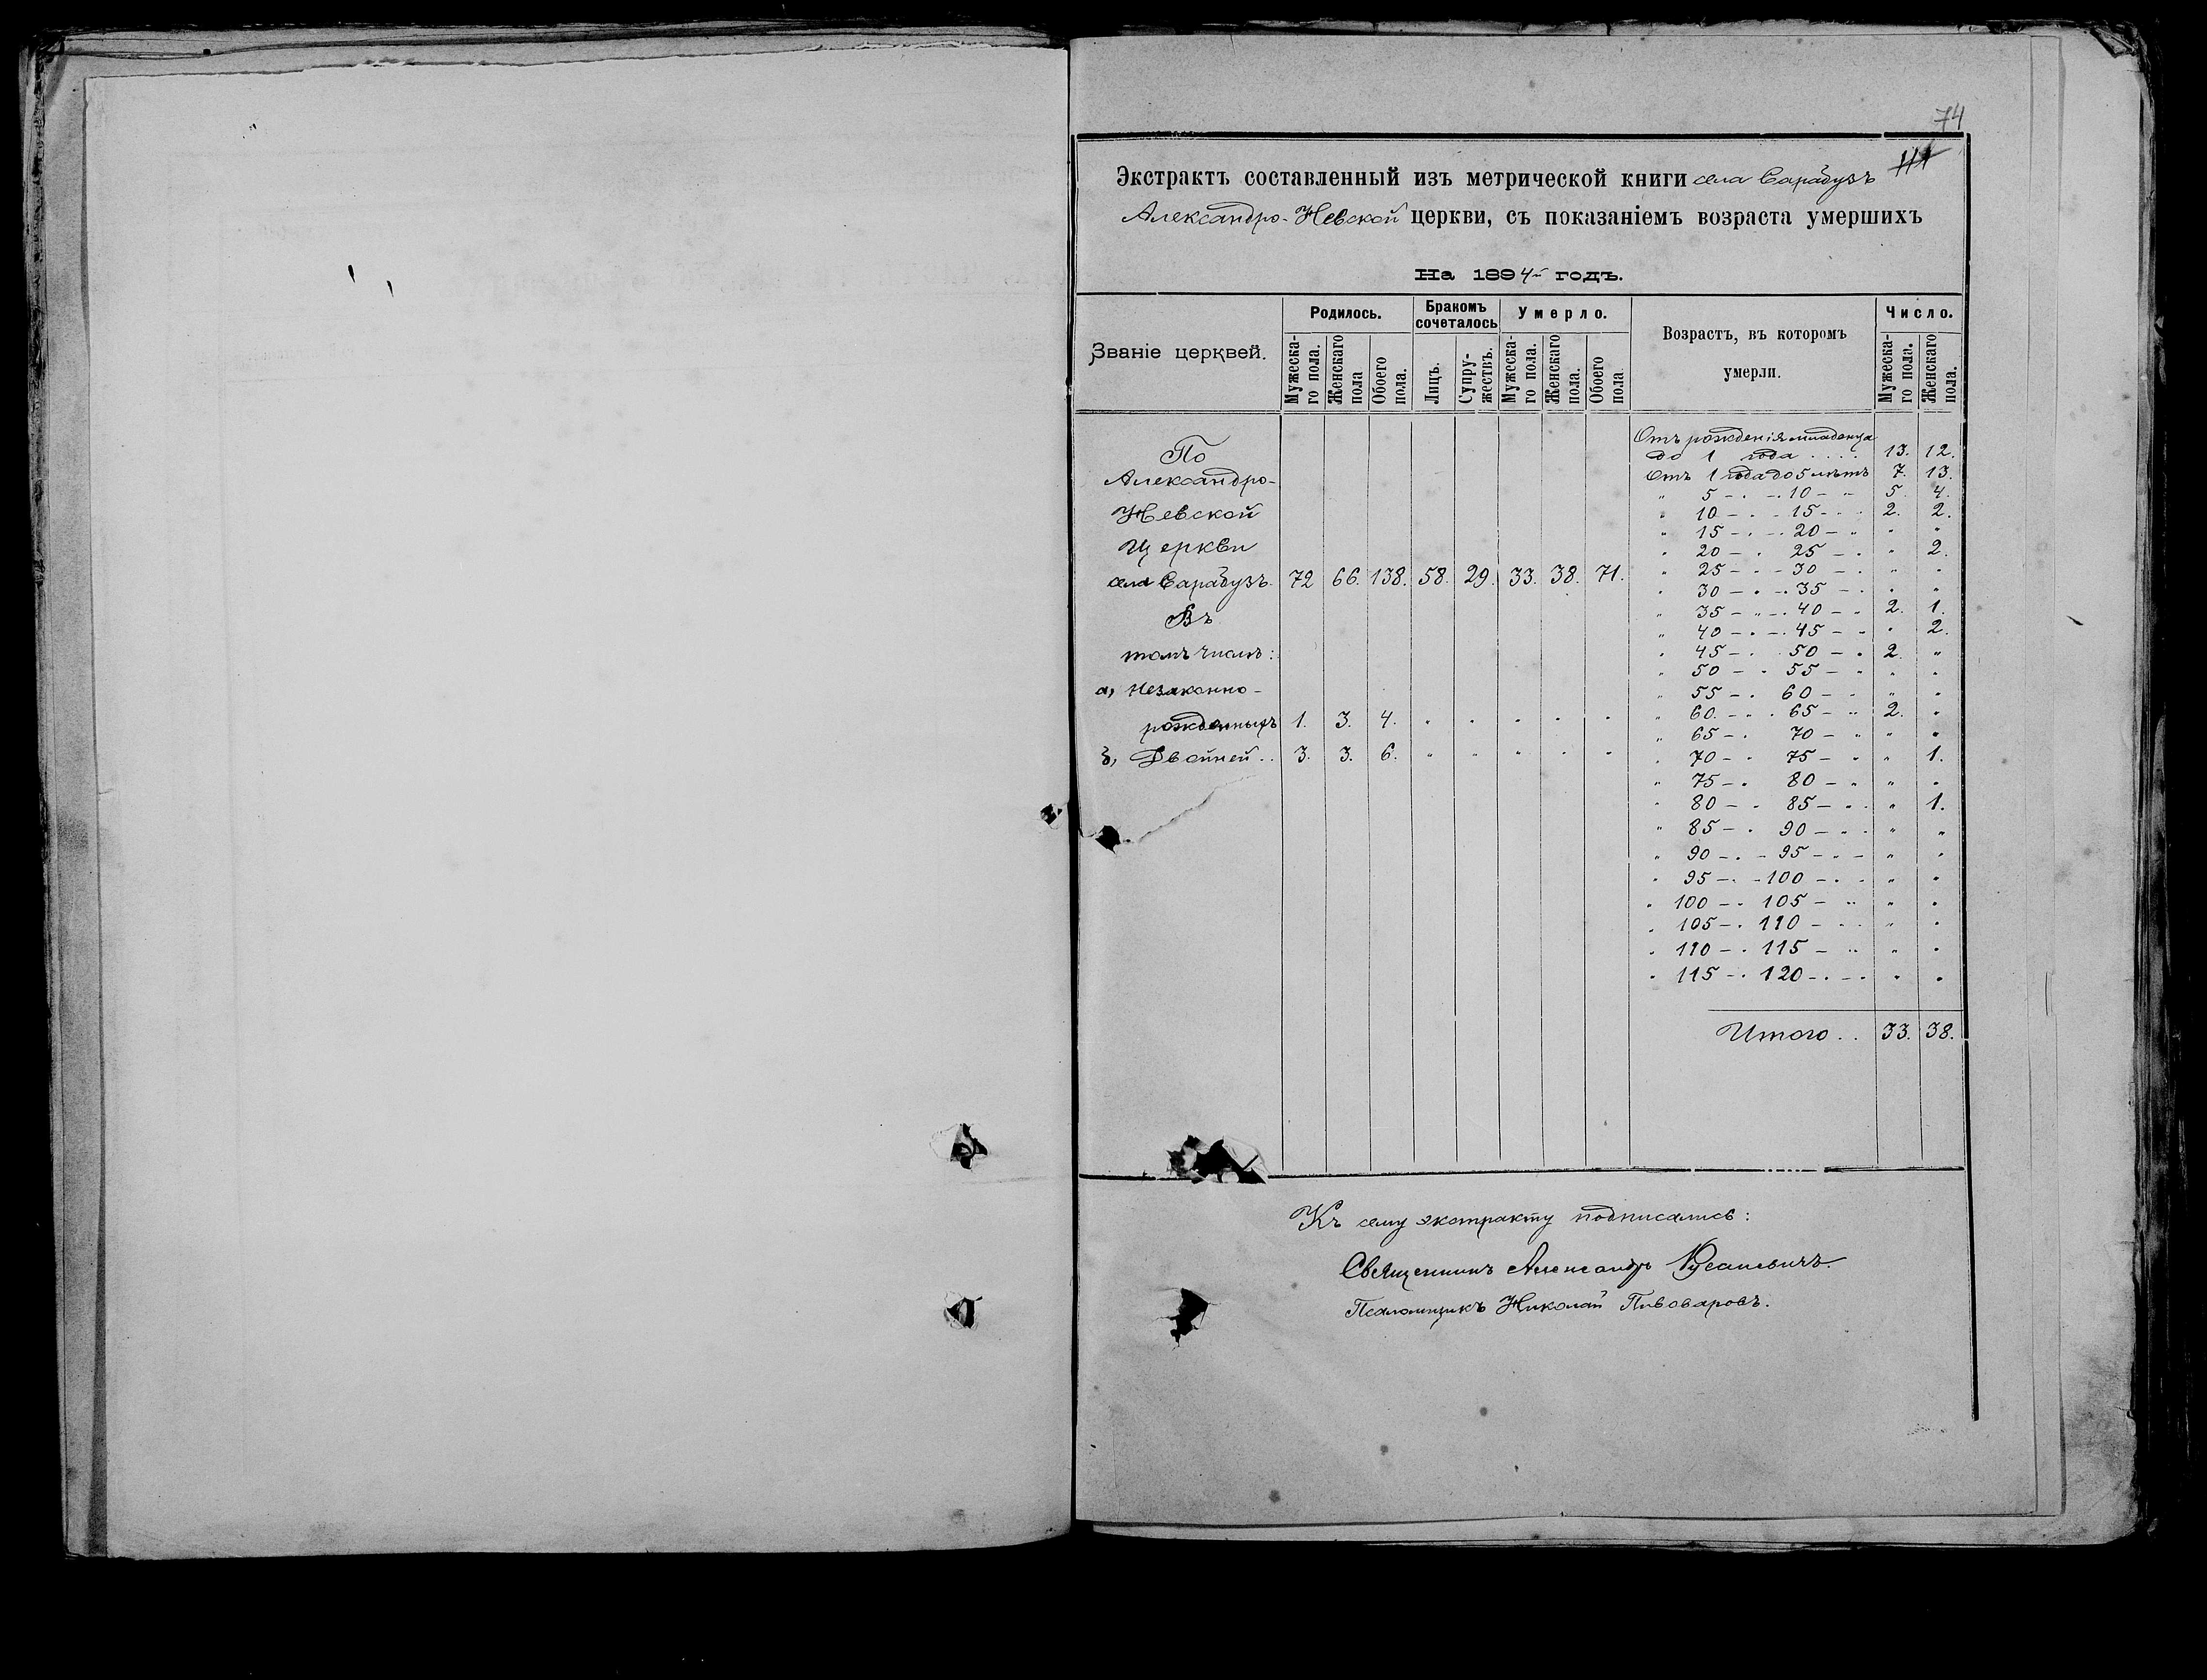 74
111
Экстрактъ составленный изъ метрической книги села Сарабузъ
Александро-Невской церкви, съ показаніемъ возраста умершихъ
На 1894й годъ.
Званіе церквей.
Родилось.
Мужеска-
го пола.
Женскаго
пола
Обоего
пола.
Бракомъ
сочеталось
Лицъ.
Супру-
жествъ.
Умерло.
Мужеска-
го пола.
Женскаго
пола.
Обоего
пола
Возрастъ, въ которомъ
умерли.
Число.
Мужеска-
го пола.
Женскаго
пола.
По
Александро-
Невской
Церкви
села Сарабузъ. 72 66. 138. 58. 29. 33. 38. 71.
Въ
томъ числѣ:
а, Незаконно-
рожденныхъ 1. 3. 4. " " " " "
б, Двойней.. 3. 3. 6. " " " " "
Отъ рожденія младенца
до 1 года .... 13. 12.
Отъ 1 года до 5 лѣтъ 7. 13.
" 5 - " - 10 - " 5. 4.
" 10 - " - 15 - " 2. 2.
" 15 - " - 20 - " " "
" 20 - " 25 - " " 2.
" 25 - " - 30 - " " "
" 30 - " - 35 - " " "
" 35 - " - 40 - " 2. 1.
" 40 - " - 45 - " " 2.
" 45 - " 50 - " 2. "
" 50 - " 55 - " " "
" 55 - " 60 - " " "
" 60 - " 65 - " 2. "
" 65 - " 70 - " " "
" 70 - " 75 - " " 1.
" 75 - " 80 - " " "
" 80 - " 85 - " " 1.
" 85 - " 90 - " " "
" 90 - " - 95 - " " "
" 95 - " - 100 - " " "
" 100 - " 105 - " " "
" 105 - " 110 - " " "
" 110 - " 115 - " " "
" 115 - " 120 - " " "
Итого.. 33. 38.
Къ сему экстракту подписались:
Священникъ Александръ Русаневичъ.
Псаломщикъ Николай Пивоваровъ.